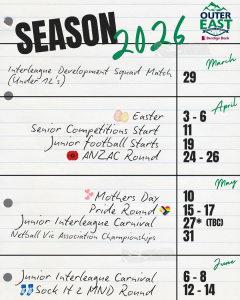 SEASON
2026
OUTER
EAST
Bendigo Bank
March
Interleague Development Squad Match
(Under 12's)
29
April
Easter
3 - 6
Senior Competitions Start
11
Junior football Starts
19
ANZAC Round
24 - 26
May
Mothers Day
10
Pride Round
15 - 17
Junior Interleague Carnival
27* (TBC)
Netball Vic Association Championships
31
June
Junior Interleague Carnival
6 - 8
Sock It 2 MND Round
12 - 14